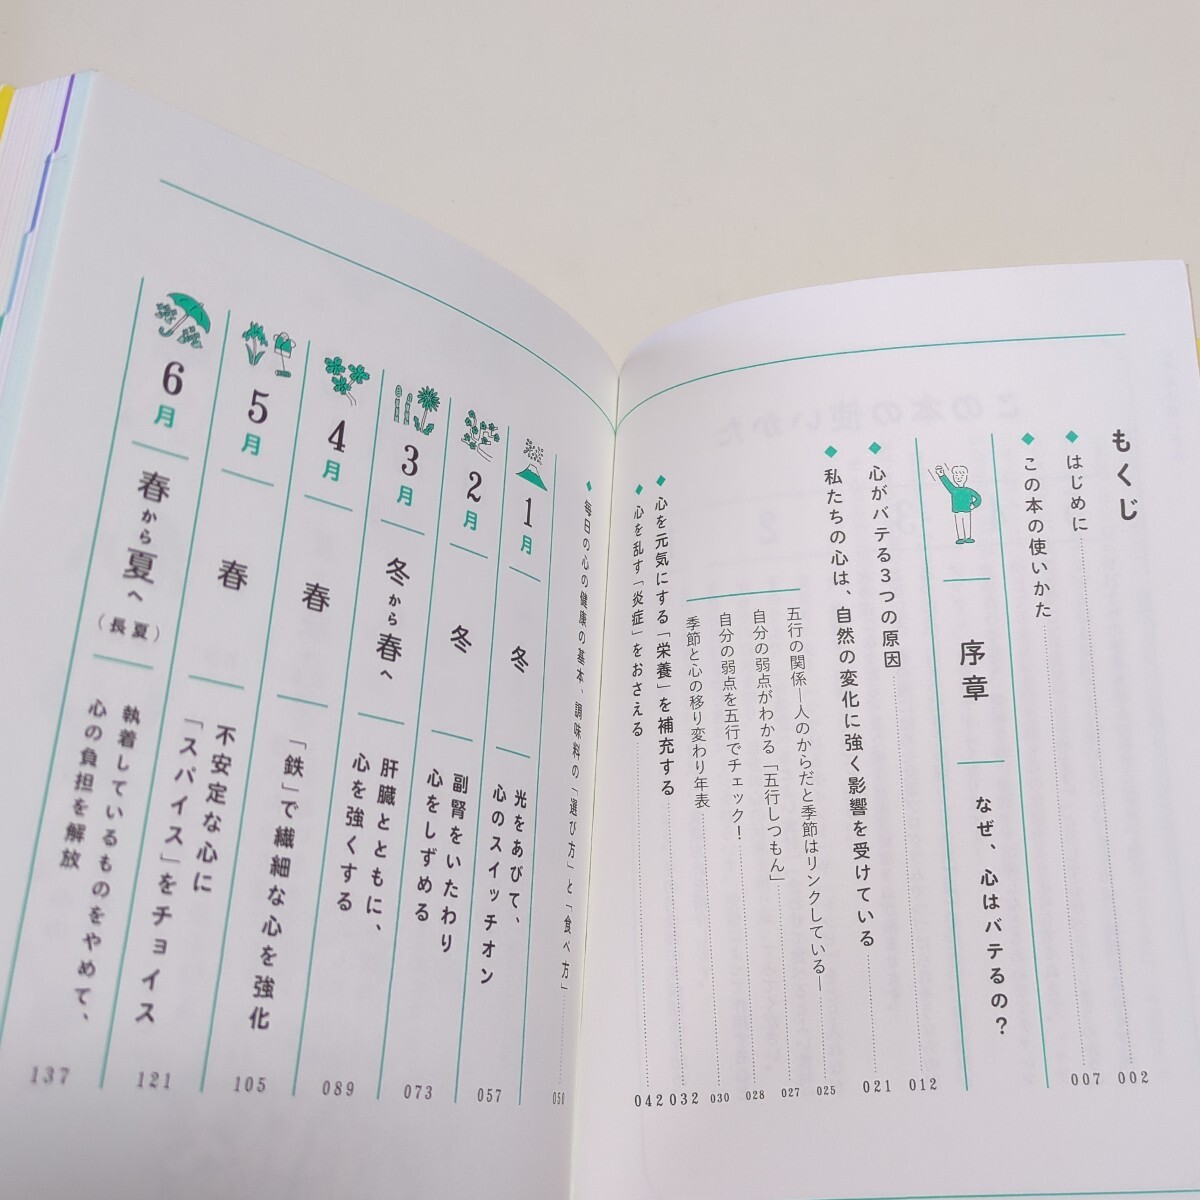 もくじ
はじめに 002
この本の使いかた 007
序章 なぜ、心はバテるの？
心がバテる3つの原因 012
私たちの心は、自然の変化に強く影響を受けている 021
五行の関係―人のからだと季節はリンクしている― 025
自分の弱点がわかる「五行しつもん」 027
自分の弱点を五行でチェック！ 028
季節と心の移り変わり年表 030
心を元気にする「栄養」を補充する 032
心を乱す「炎症」をおさえる 042
毎日の心の健康の基本、調味料の「選び方」と「食べ方」 050
1月 冬 光をあびて、
心のスイッチオン 057
2月 冬 副腎をいたわり
心をしずめる 073
3月 冬から春へ 肝臓とともに、
心を強くする 089
4月 春 「鉄」で繊細な心を強化 105
5月 春 不安定な心に
「スパイス」をチョイス 121
6月 春から夏へ（長夏） 執着しているものをやめて、
心の負担を解放 137